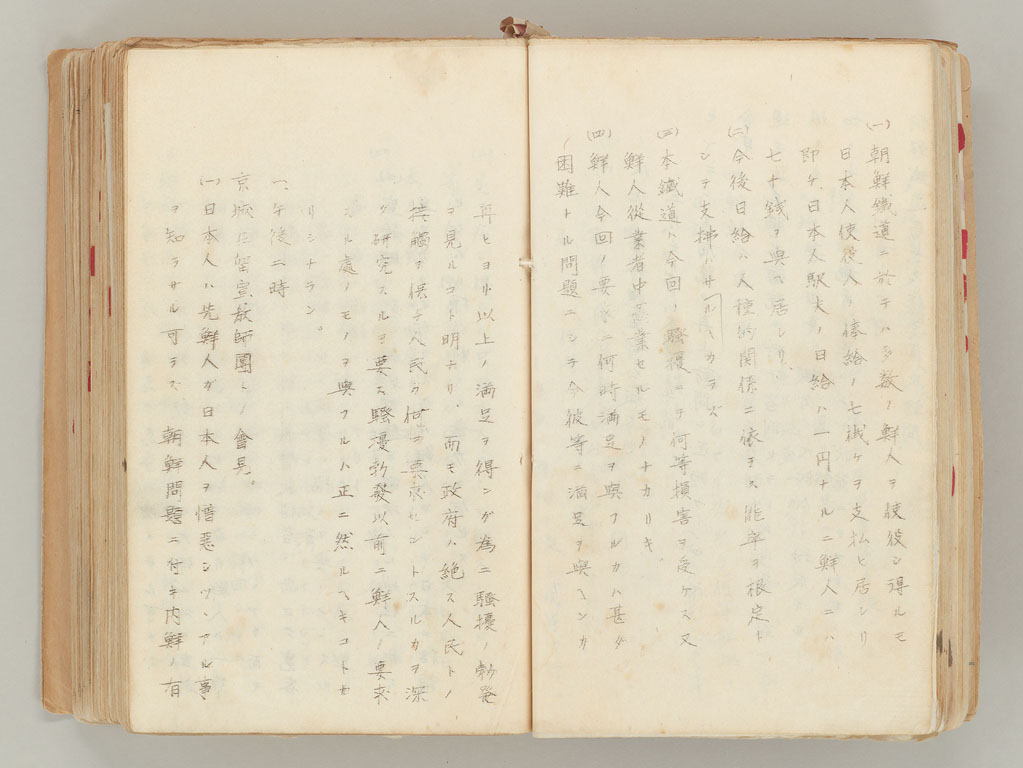 (一)朝鮮鐵道ニ於テハ多数ノ鮮人ヲ使役シ得ルモ
日本人使役人ノ俸給ノ七割ヶヲ支払ヒ居レリ
即チ、日本人駅夫ノ日給ハ一円ナルニ鮮人ニハ
七十錢ヲ與ヘ居レリ、
(二)今後日給ハ人種的関係ニ依ラス能率ヲ根定ト
シテ支拂ハサルヘカラズ
(三)本鐵道ハ今回ノ騒擾ニテ何等損害ヲ受ケス又
鮮人從業者中罷業セルモノナカリキ。
(四)鮮人今回ノ要求ニ何時満足ヲ與フルカハ甚ダ
困難トル問題ニシテ今彼等ニ満足ヲ與ヘンカ
再ヒヨリ以上ノ満足ヲ得ンガ為ニ騒擾ノ勃発
ヲ見ルコト明ナリ、而モ政府ハ絶ス人民トノ
接觸ヲ保チ人民ガ何ヲ要求セントスルカヲ深
ク研究スルヲ要ス騒擾勃發以前ニ鮮人ノ要求
スル處ノモノヲ與フルハ正ニ然ルヘキコトナ
リシナラン。
一、午後二時
京城ニ於宣教師團トノ會見。
(一)日本人ハ先鮮人ガ日本人ヲ憎悪シツヽアル事
ヲ知ラサル可ラズ 朝鮮問題ニ付キ内鮮ノ有